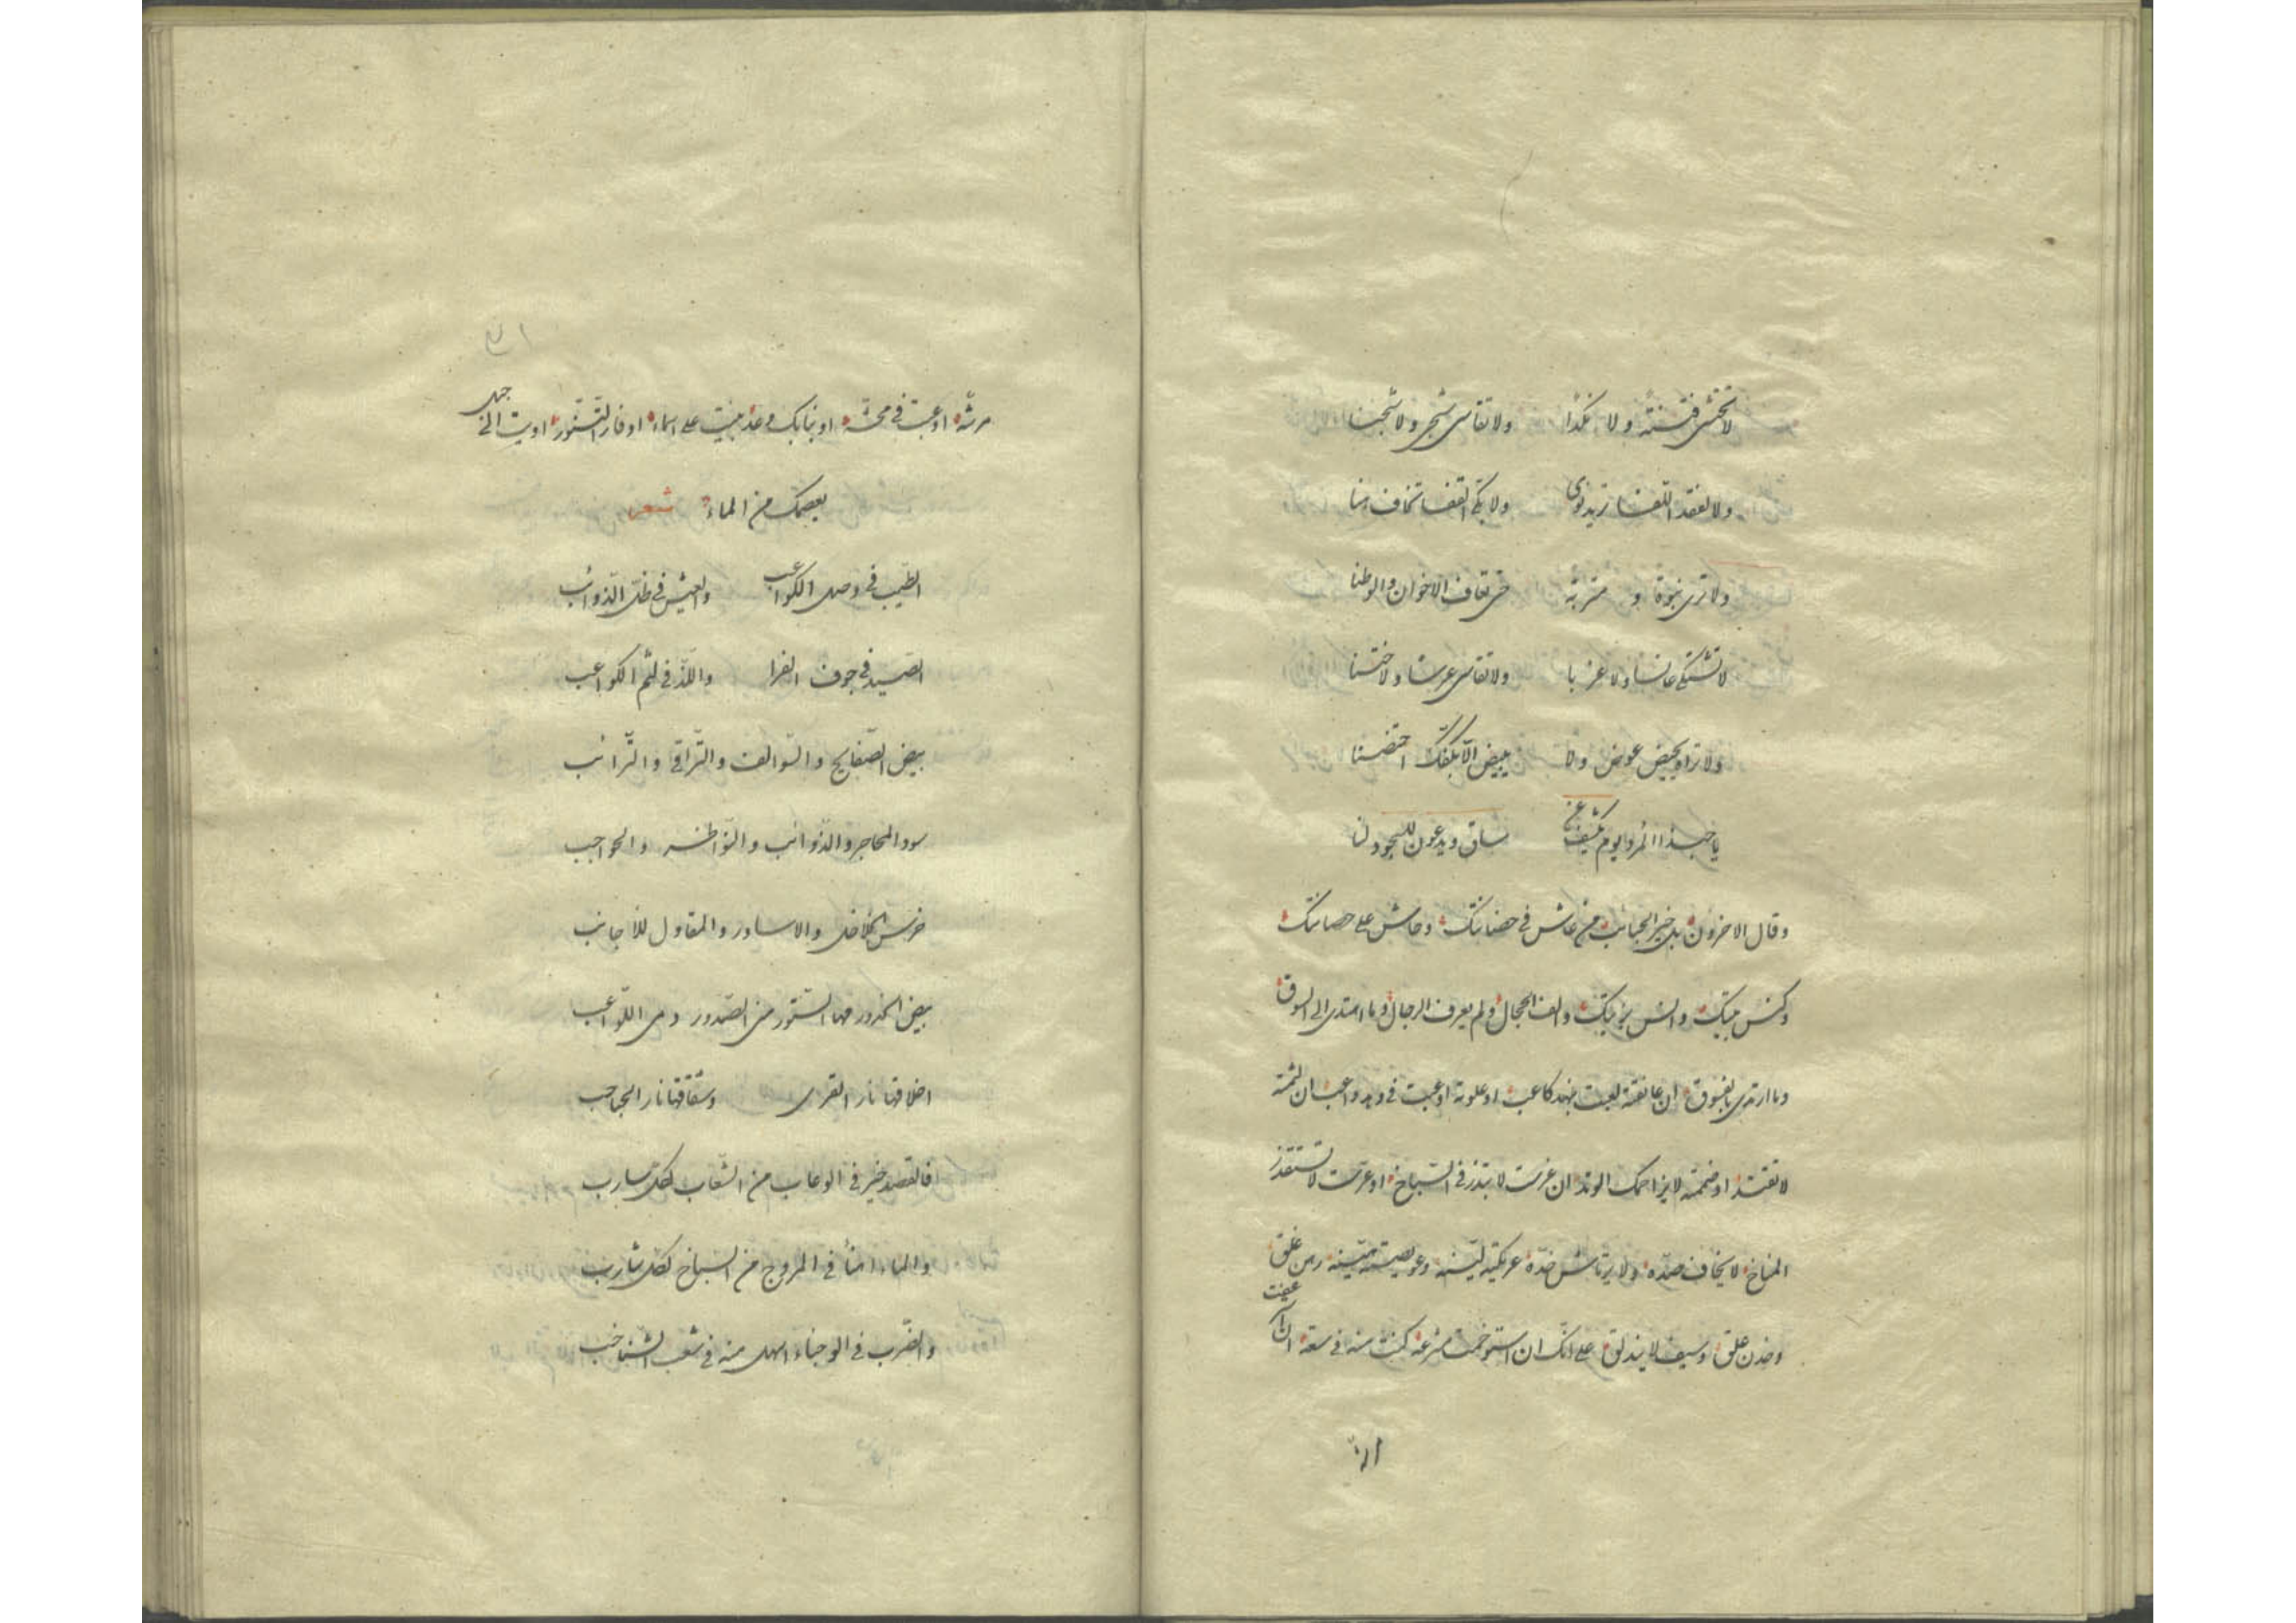 لا تخش فتنة ولا نكدا ولا تقاسى شجر ولا شجنا
ولا لفقد اللقا تريد نوى ولا القفا تخاف انا
ولا ترى نبوة و متربة حتى تعاف الاخوان والوطنا
لا تشتكى عانسا ولا عزبا ولا تقاسى عرسا ولا ختنا
ولا تراو بحيض عوض ولا ببيض الا بكفك احتضنا
يا حبذا المرد يوم يكشف عن ساق ويدعون للسجود لنا
وقال الاخرون بل خير الحبائب من عاش فى حضانتك وحاش على حصانتك
وكنس بيتك وانس بزيتك والف الحجال ولم يعرف الرجال وما اهتدى الى السوق
وما ارتدى بالفسوق ان عانقته لعبت بنهد كاعب او علوته اوعبت فى واعب ان لثمته
لا تقتذ او ضممته لا يزاحمك الوتد ان غرست لا تبذر فى السباخ او عرست لا تستقذر
المناخ لا يخاف صده ولا يرتاش خده عريكته لينة وعويصته هينة رهن غلق
وخدن علق وسيف لا يندلق على انك ان استوخمت مشرعه كنت منه فى سعة ان عفت
مرثه اوعبت فى محثه او نبا بك وعد بنيت على اسماء او فار التنور اويت الى جبل
يعصمك من الماء شعر
الطيب فى وصل الكواعب والعيش فى ظل الذوائب
الصيد فى جوف الفرا واللذ فى لثم الكواعب
بيض الصفايح والسوالف والتراقى والترائب
سود المحاجر والذوائب والنواظر والحواجب
خرس الخلاخل والاساور والمقاول للاجانب
بيض الخدور مها الستور من الصدور دمى اللواعب
اخلاقها نار القرى وشقاقها نار الحباحب
فالقصد خير فى الوعاب من الشعاب لكل سارب
والماء اهنأ فى المروج من السباخ لكل شارب
والضرب فى الوجناء اسهل منه فى شعب الشناخب